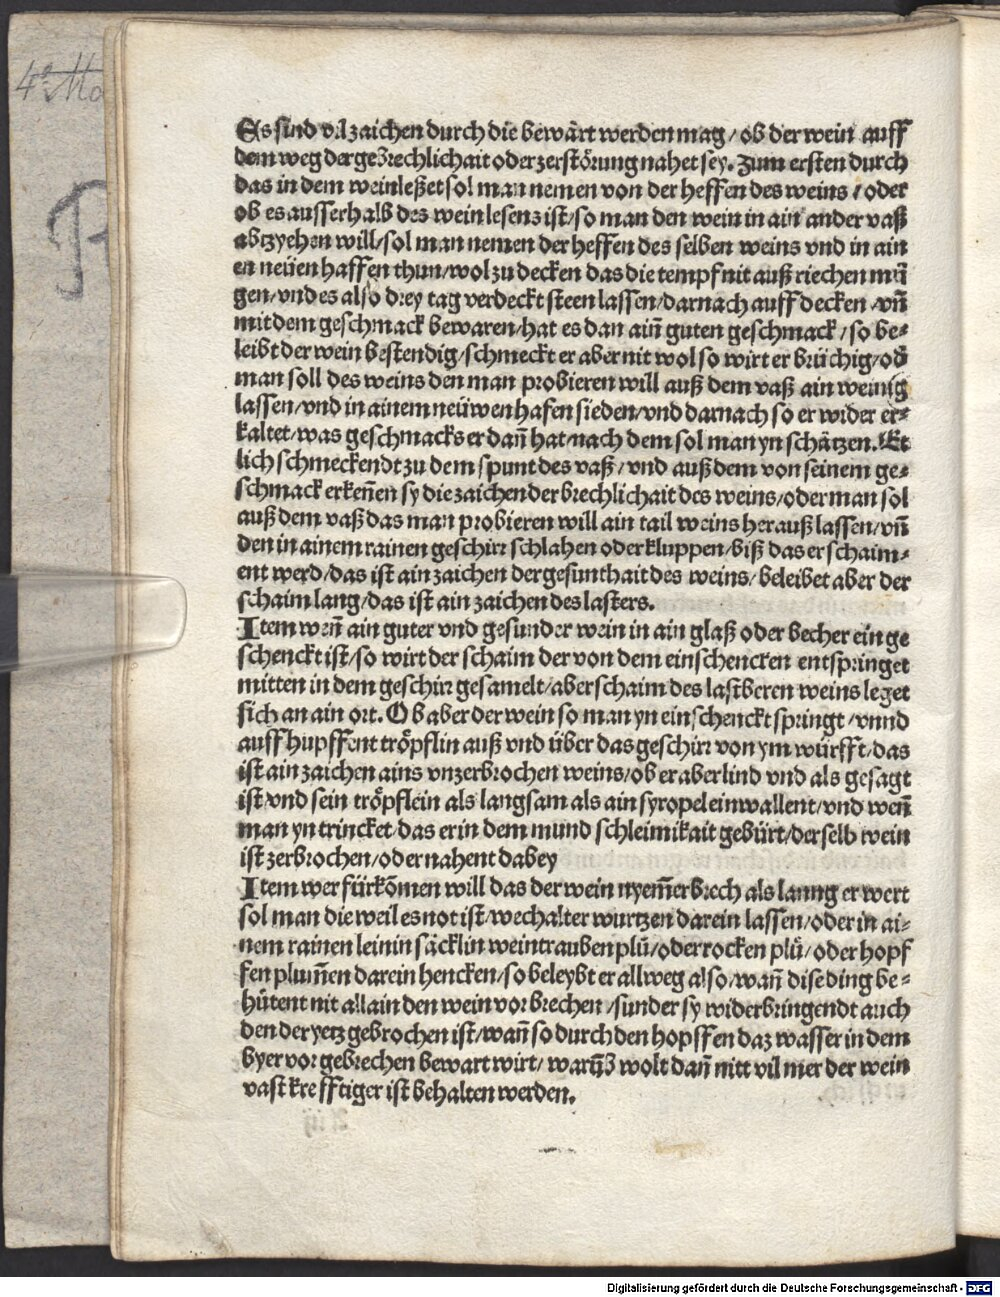 4° Ma
P
Es sind vil zaichen durch die bewärt werden mag / ob der wein auff
dem weg der gebrechlichait oder zerstörung nahet sey. Zum ersten durch
das in dem weinleßet sol man nemen von der heffen des weins / oder
ob es ausserhalb des weinlesens ist/so man den wein in ain ander vaß
abtzyehen will/sol man nemen der heffen des selben weins vnd in ain
en neüen haffen thun/wol zu decken das die tempf nit auß riechen mü
gen/vnd es also drey tag verdeckt steen lassen/darnach auff decken /vn̄
mit dem geschmack bewaren/hat es dan ain̄ guten geschmack / so be⸗
leibt der wein bestendig/schmeckt er aber nit wol so wirt er brüchig/od̄
man soll des weins den man probieren will auß dem vaß ain wenig
lassen/vnd in ainem neüwen hafen sieden/vnd darnach so er wider er⸗
kaltet/was geschmacks er dan̄ hat/nach dem sol man yn schätzen. Et
lich schmeckendt zu dem spunt des vaß / vnd auß dem von seinem ge⸗
schmack erken̄en sy die zaichen der brechlichait des weins/oder man sol
auß dem vaß das man probieren will ain tail weins herauß lassen/vn̄
den in ainem rainen geschirr schlahen oder kluppen/biß das er schaim⸗
ent werd/das ist ain zaichen der gesunthait des weins/ beleibet aber der
schaim lang/das ist ain zaichen des lasters.
Item wen̄ ain guter vnd gesunder wein in ain glaß oder becher ein ge
schenckt ist/so wirt der schaim der von dem einschencken entspringet
mitten in dem geschirr gesamelt/aber schaim des lastberen weins leget
sich an ain ort. Ob aber der wein so man yn ein schenckt springt /vnnd
auff hupffent tröpflin auß vnd über das geschirr von ym würfft/das
ist ain zaichen ains vnzerbrochen weins/ob er aber lind vnd als gesagt
ist/vnd sein tröpflein als langsam als ain syropel einwallent/vnd wen̄
man yn trincket/das er in dem mund schleimikait gebürt/der selb wein
ist zerbrochen/oder nahent dabey
Item wer fürkōmen will das der wein nyem̄er brech als lanng er wert
sol man die weil es not ist/wechalter wurtzen darein lassen/oder in ai⸗
nem rainen leinin säcklin weintrauben plü/oder rocken plü/oder hopf
fen plum̄en darein hencken/so beleybt er allweg also/wan̄ dise ding be⸗
hütent nit allain den wein vor brechen /sunder sy widerbringendt auch
den der yetz gebrochen ist/wan̄ so durch den hopffen daz wasser in dem
byer vor gebrechen bewart wirt/ warūb wolt dan̄ nitt vil mer der wein
vast krefftiger ist behalten werden.
Digitalisierung gefördert durch die Deutsche Forschungsgemeinschaft - DFG